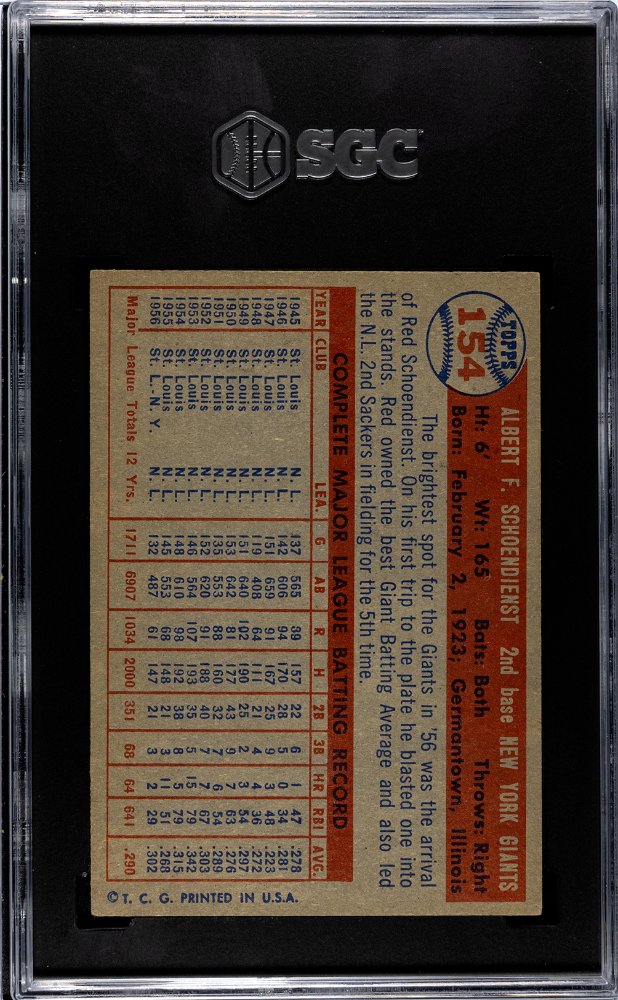 SGC
TOPPS
154
ALBERT F. SCHOENDIENST 2nd base NEW YORK GIANTS
Ht: 6' Wt: 165 Bats: Both Throws: Right
Born: February 2, 1923; Germantown, Illinois
The brightest spot for the Giants in '56 was the arrival
of Red Schoendienst. On his first trip to the plate he blasted one into
the stands. Red owned the best Giant Batting Average and also led
the N.L. 2nd Sackers in fielding for the 5th time.
COMPLETE MAJOR LEAGUE BATTING RECORD
YEAR CLUB LEA. G AB R H 2B 3B HR RBI AVG.
1945 St. Louis N. L. 137 565 39 157 22 6 1 47 .278
1946 St. Louis N. L. 142 606 94 170 28 5 0 34 .281
1947 St. Louis N. L. 151 659 91 167 25 9 3 48 .223
1948 St. Louis N. L. 119 408 64 111 21 4 4 36 .272
1949 St. Louis N. L. 151 640 102 190 25 2 3 54 .297
1950 St. Louis N. L. 153 642 81 177 43 9 7 63 .276
1951 St. Louis N. L. 135 553 88 160 32 7 6 54 .289
1952 St. Louis N. L. 152 620 91 188 40 7 7 67 .303
1953 St. Louis N. L. 146 564 107 193 35 5 15 79 .342
1954 St. Louis N. L. 148 610 98 192 38 8 5 79 .315
1955 St. Louis N. L. 145 553 68 148 21 3 11 51 .288
1956 St. L.-N. Y. N. L. 132 487 61 147 21 3 2 29 .302
Major League Totals 12 Yrs. 1711 6907 1034 2000 351 68 64 641 .290
© T. C. G. PRINTED IN U.S.A.